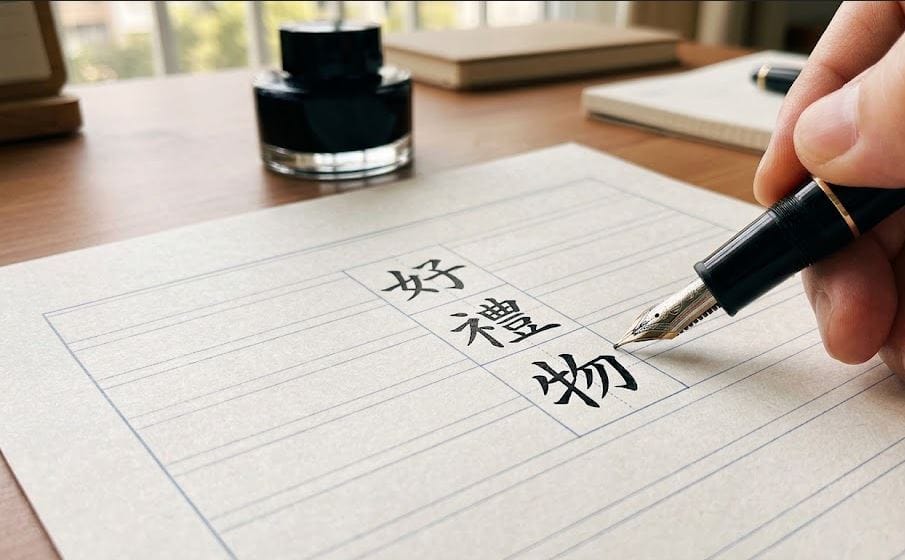 好禮物